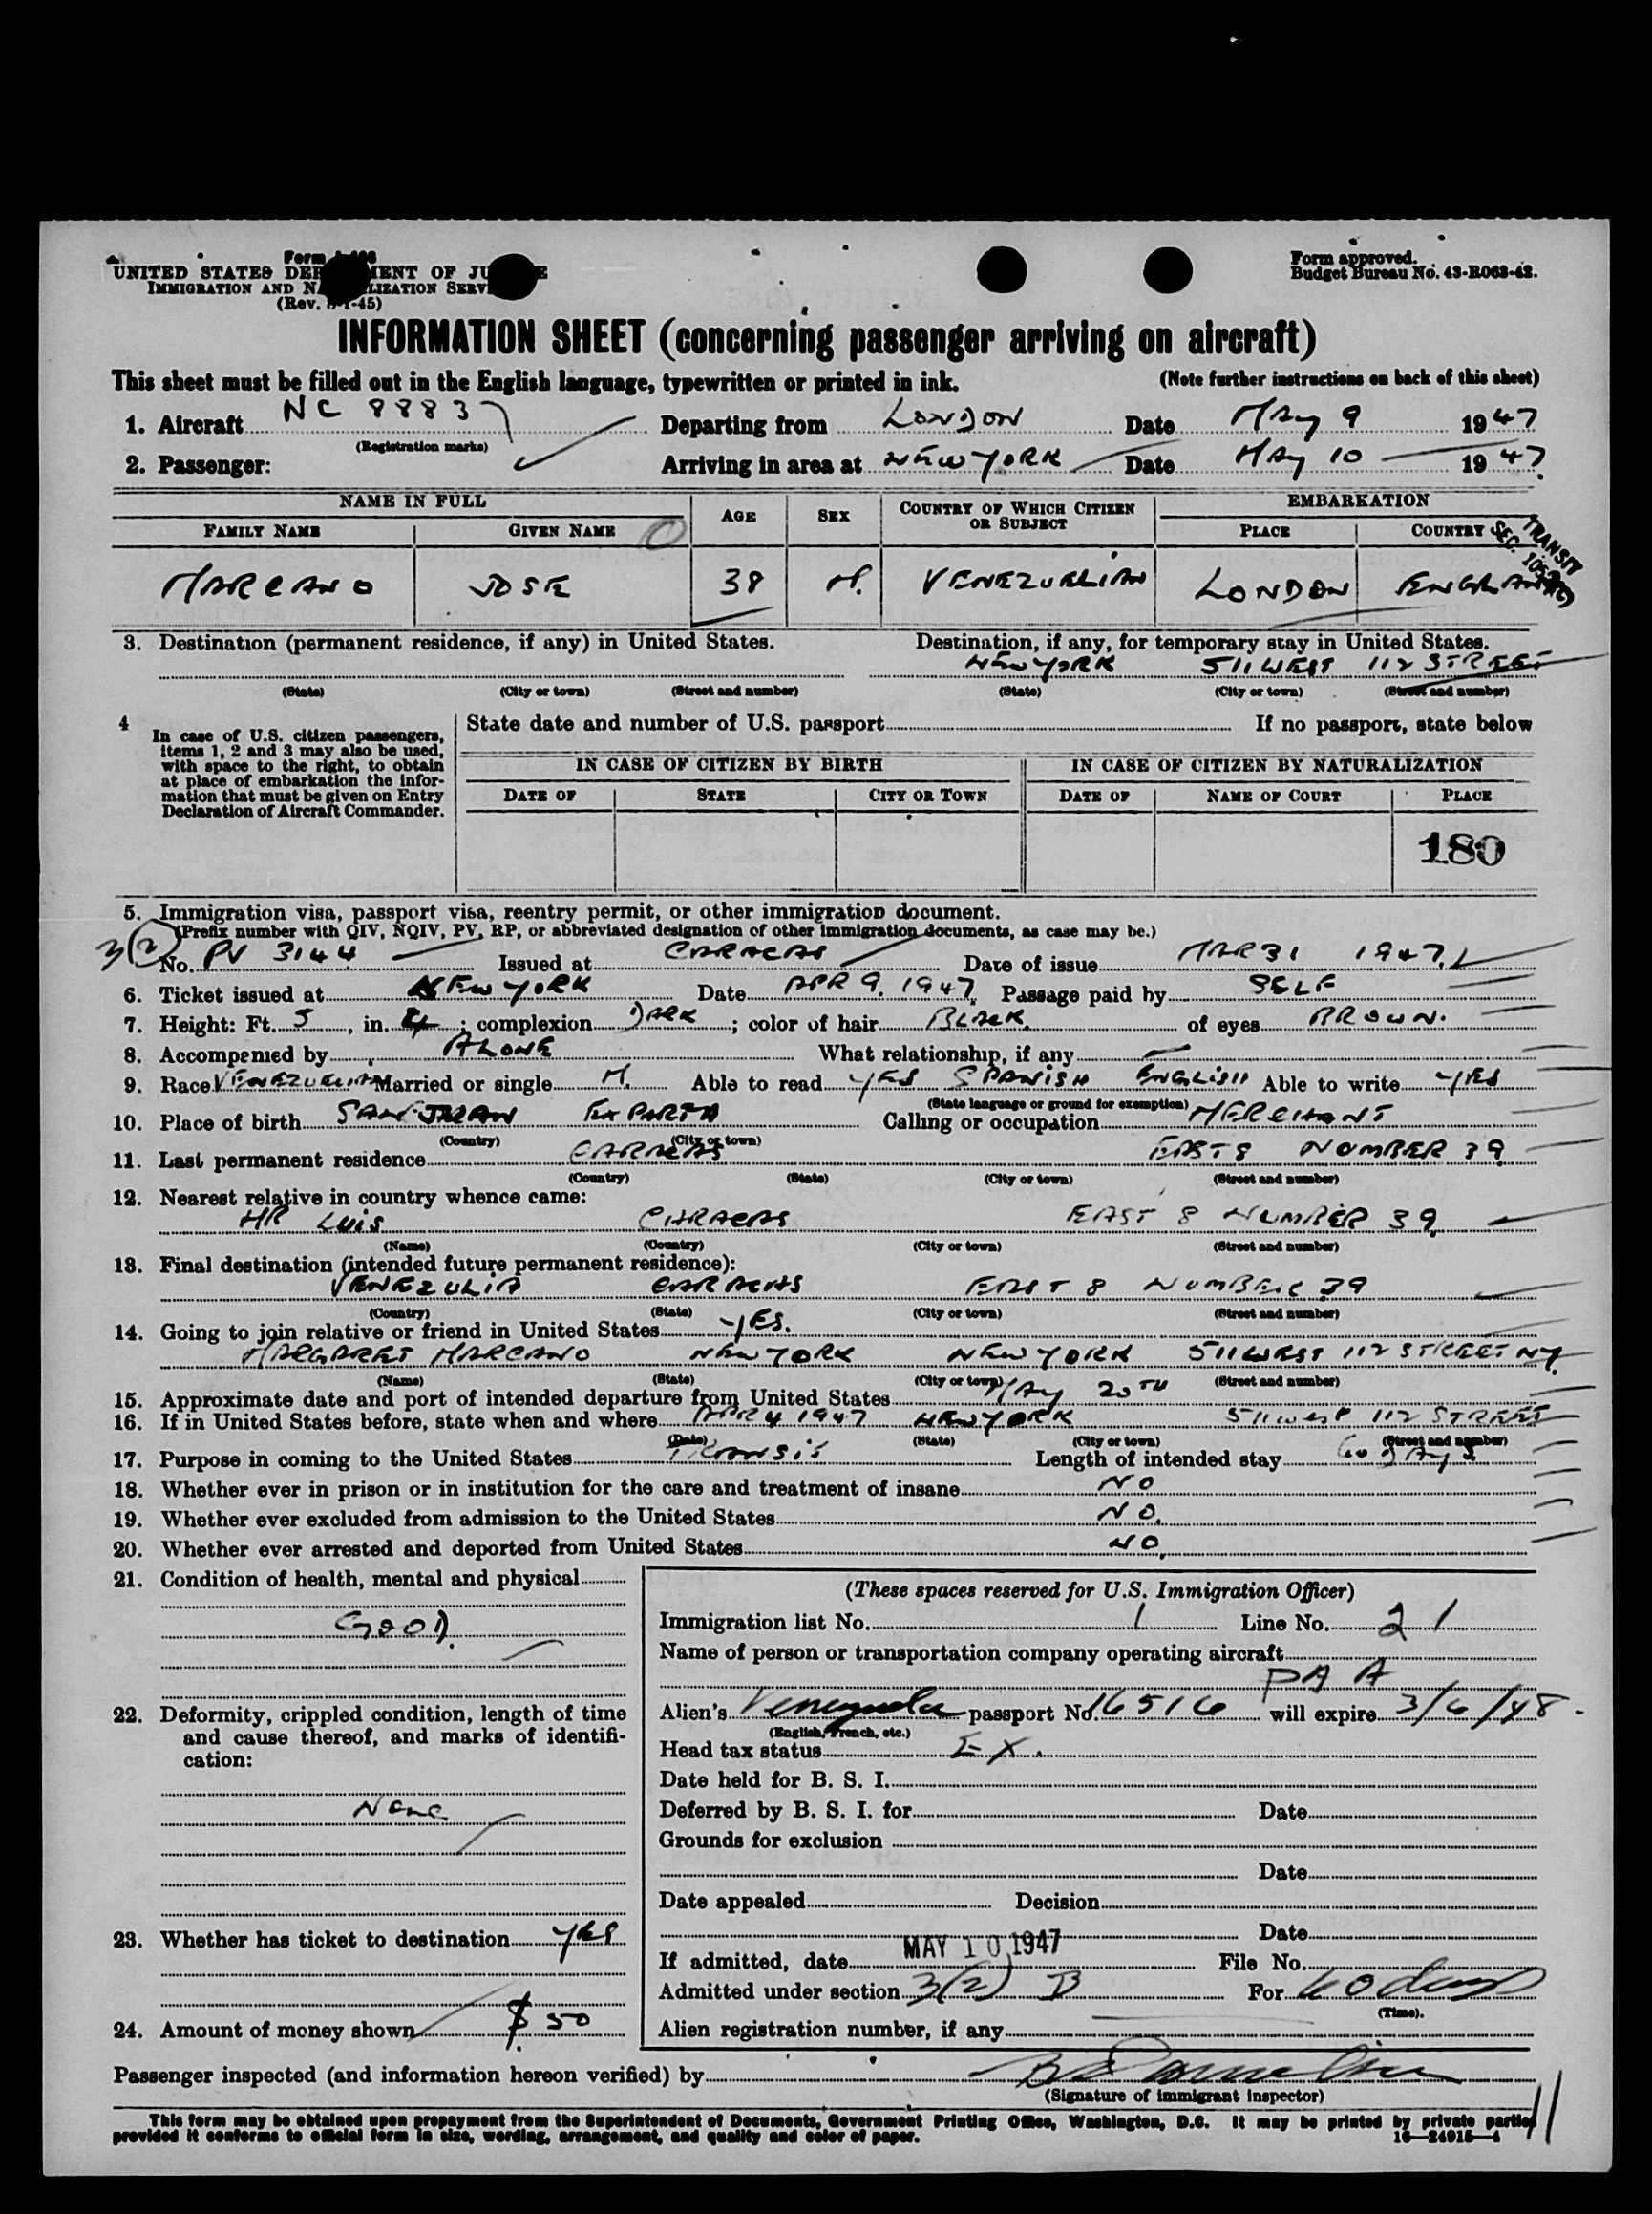 Form I-466
UNITED STATES DEPARTMENT OF JUSTICE
IMMIGRATION AND NATURALIZATION SERVICE
(Rev. 8-1-45)
Form approved.
Budget Bureau No. 43-R063-42.
INFORMATION SHEET (concerning passenger arriving on aircraft)
This sheet must be filled out in the English language, typewritten or printed in ink. (Note further instructions on back of this sheet)
1. Aircraft NC 88837 Departing from LONDON Date MAy 9 1947
(Registration marks)
2. Passenger: Arriving in area at NEW YORK Date MAy 10 1947.
NAME IN FULL AGE SEX COUNTRY OF WHICH CITIZEN OR SUBJECT EMBARKATION
FAMILY NAME GIVEN NAME PLACE COUNTRY
TRANSIT
SEC.
MARCANO JOSE 38 M. VENEZUELIAN LONDON ENGLAND
3. Destination (permanent residence, if any) in United States. Destination, if any, for temporary stay in United States.
NEW YORK 511 WEST 112 STREET
(State) (City or town) (Street and number) (State) (City or town) (Street and number)
4 In case of U.S. citizen passengers, items 1, 2 and 3 may also be used, with space to the right, to obtain at place of embarkation the information that must be given on Entry Declaration of Aircraft Commander.
State date and number of U.S. passport If no passport, state below
IN CASE OF CITIZEN BY BIRTH IN CASE OF CITIZEN BY NATURALIZATION
DATE OF STATE CITY OR TOWN DATE OF NAME OF COURT PLACE
180
5. Immigration visa, passport visa, reentry permit, or other immigration document.
(Prefix number with QIV, NQIV, PV, RP, or abbreviated designation of other immigration documents, as case may be.)
3(2) No. PV 3144 Issued at CARACAS Date of issue MAR 31 1947.
6. Ticket issued at NEW YORK Date APR 9. 1947. Passage paid by SELF
7. Height: Ft. 5, in. 4; complexion DARK; color of hair BLACK. of eyes BROWN.
8. Accompanied by ALONE What relationship, if any —
9. Race VENEZUELIAN Married or single M. Able to read YES SPANISH ENGLISH Able to write YES
(State language or ground for exemption)
10. Place of birth SAN JUAN EXPARTA Calling or occupation MERCHANT
(Country) (City or town)
11. Last permanent residence CARACAS EAST 8 NUMBER 39
(Country) (State) (City or town) (Street and number)
12. Nearest relative in country whence came:
MR LUIS CARACAS EAST 8 NUMBER 39
(Name) (Country) (City or town) (Street and number)
13. Final destination (intended future permanent residence):
VENEZULIA CARACAS EAST 8 NUMBER 39
(Country) (State) (City or town) (Street and number)
14. Going to join relative or friend in United States YES.
MARGARET MARCANO NEW YORK NEW YORK 511 WEST 112 STREET NY.
(Name) (State) (City or town) (Street and number)
15. Approximate date and port of intended departure from United States MAy 20TH
16. If in United States before, state when and where APR 4 1947 NEW YORK 511 West 112 STREET
(Date) (State) (City or town) (Street and number)
17. Purpose in coming to the United States TRANSIT Length of intended stay 60 DAys
18. Whether ever in prison or in institution for the care and treatment of insane NO
19. Whether ever excluded from admission to the United States NO.
20. Whether ever arrested and deported from United States NO.
21. Condition of health, mental and physical
GOOD.
22. Deformity, crippled condition, length of time and cause thereof, and marks of identification:
None
23. Whether has ticket to destination yes
24. Amount of money shown $ 50
(These spaces reserved for U.S. Immigration Officer)
Immigration list No. 1 Line No. 21
Name of person or transportation company operating aircraft
PAA
Alien's Venezuela passport No. 16516 will expire 3/6/48.
(English, French, etc.)
Head tax status EX.
Date held for B. S. I.
Deferred by B. S. I. for Date
Grounds for exclusion
Date
Date appealed Decision
Date
If admitted, date MAY 10 1947 File No.
Admitted under section 3(2) B For 60 days
(Time).
Alien registration number, if any
Passenger inspected (and information hereon verified) by
(Signature of immigrant inspector)
This form may be obtained upon prepayment from the Superintendent of Documents, Government Printing Office, Washington, D.C. It may be printed by private parties
provided it conforms to official form in size, wording, arrangement, and quality and color of paper. 16—24915-4